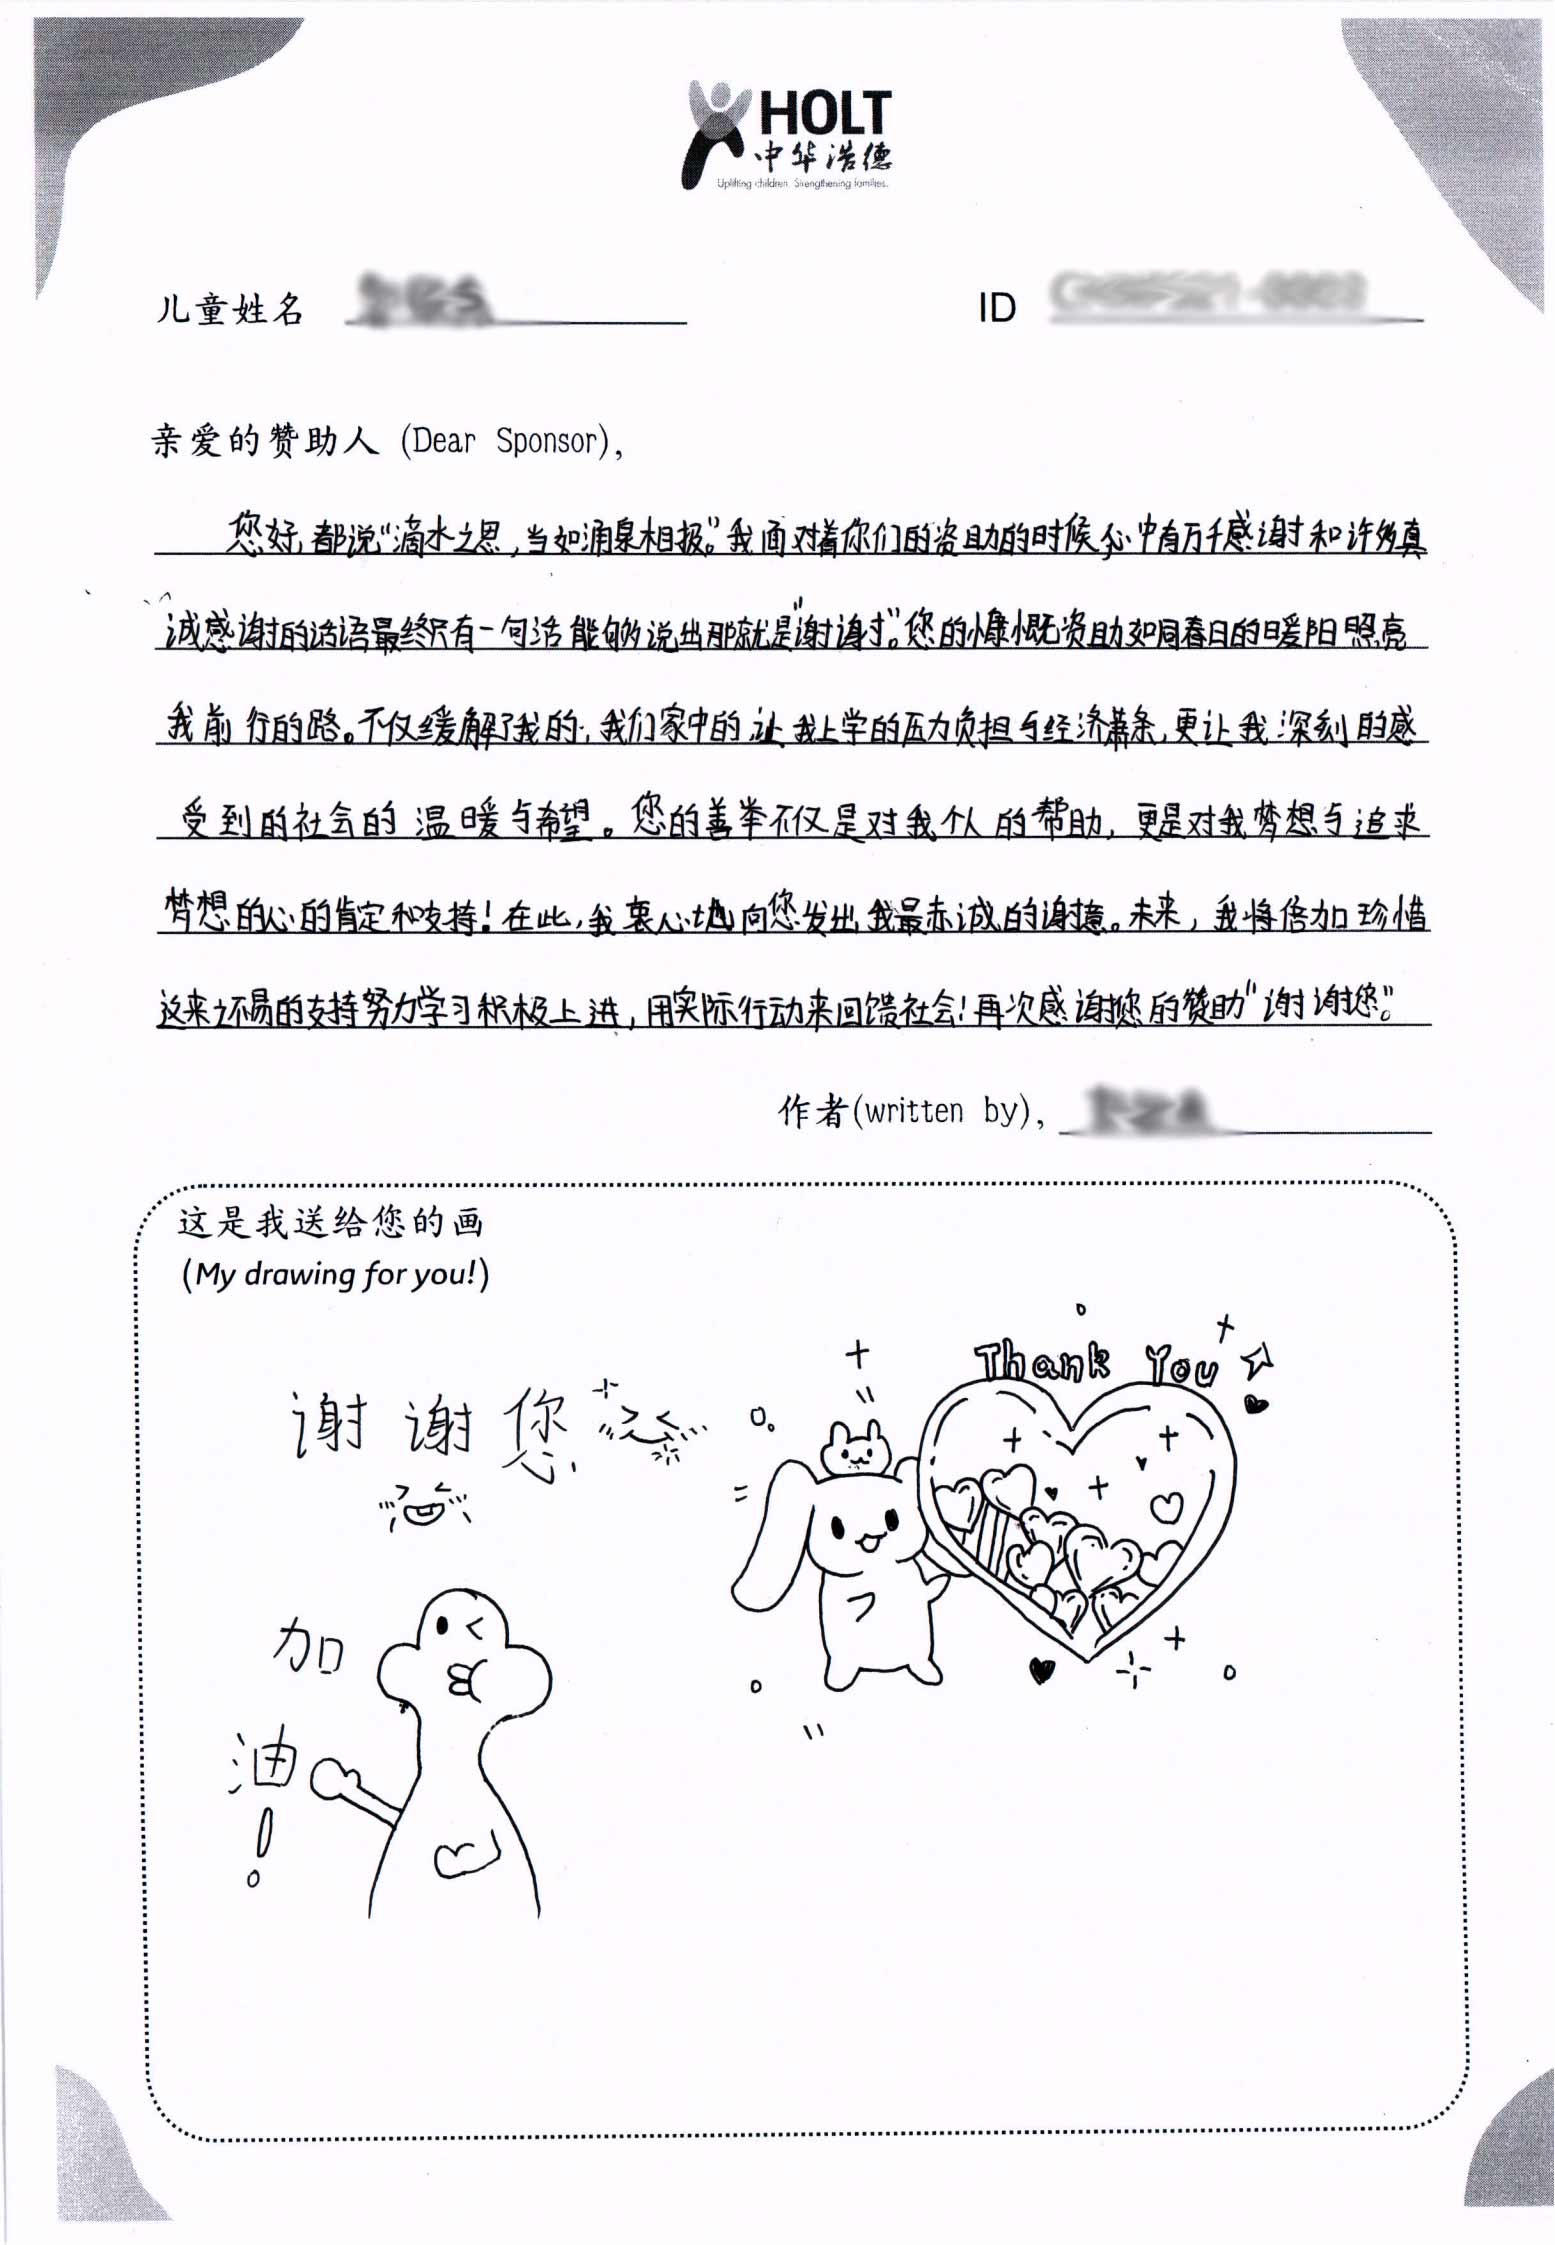 HOLT
中华浩德
Uplifting children. Strengthening families.
儿童姓名
ID
亲爱的赞助人 (Dear Sponsor),
您好,都说“滴水之恩,当如涌泉相报”。我面对着你们的资助的时候,心中有万千感谢和许多真
诚感谢的话语最终只有一句话能够说出那就是“谢谢”。您的慷慨资助如同春日的暖阳照亮
我前行的路。不仅缓解了我的,我们家中的,让我上学的压力负担与经济萧条,更让我深刻的感
受到的社会的温暖与希望。您的善举不仅是对我个人的帮助,更是对我梦想与追求
梦想的心的肯定和支持!在此,我衷心地向您发出我最赤诚的谢意。未来,我将倍加珍惜
这来之不易的支持努力学习积极上进,用实际行动来回馈社会!再次感谢您的赞助“谢谢您”。
作者(written by),
这是我送给您的画
(My drawing for you!)
Thank You
谢谢您
加
油
!